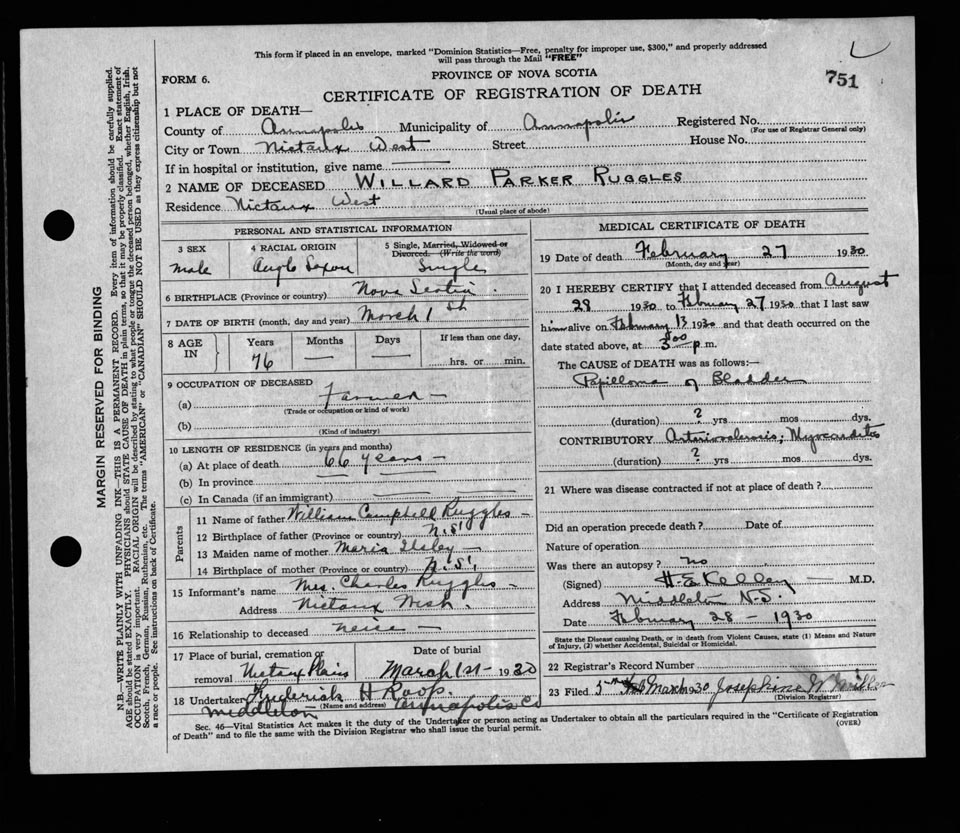 This form if placed in an envelope, marked "Dominion Statistics—Free, penalty for improper use, $300," and properly addressed
will pass through the Mail "FREE"
FORM 6.
PROVINCE OF NOVA SCOTIA
751
CERTIFICATE OF REGISTRATION OF DEATH
1 PLACE OF DEATH—
County of Annapolis Municipality of Annapolis Registered No.
(For use of Registrar General only)
City or Town Nictaux West Street House No.
If in hospital or institution, give name
2 NAME OF DECEASED WILLARD PARKER RUGGLES
Residence Nictaux West
(Usual place of abode)
PERSONAL AND STATISTICAL INFORMATION
3 SEX 4 RACIAL ORIGIN 5 Single, Married, Widowed or
Divorced. (Write the word)
male Anglo Saxon Single
6 BIRTHPLACE (Province or country) Nova Scotia
7 DATE OF BIRTH (month, day and year) March 1st
8 AGE IN Years Months Days If less than one day,
76 hrs. or min.
9 OCCUPATION OF DECEASED
(a) Farmer
(Trade or occupation or kind of work)
(b)
(Kind of industry)
10 LENGTH OF RESIDENCE (in years and months)
(a) At place of death 66 years
(b) In province
(c) In Canada (if an immigrant)
Parents
11 Name of father William Campbell Ruggles
12 Birthplace of father (Province or country) N.S.
13 Maiden name of mother Maria Ilsley
14 Birthplace of mother (Province or country) N.S.
15 Informant's name Mrs. Charles Ruggles
Address Nictaux West.
16 Relationship to deceased neice
17 Place of burial, cremation or removal Date of burial
Nictaux Plains March 1st - 1930
18 Undertaker Frederick H Roop.
(Name and address)
Middleton Annapolis Co
MEDICAL CERTIFICATE OF DEATH
19 Date of death February 27 1930
(Month, day and year)
20 I HEREBY CERTIFY that I attended deceased from August
28 1930 to February 27 1930 that I last saw
him alive on February 13 1930 and that death occurred on the
date stated above, at 3:00 p.m.
The CAUSE OF DEATH was as follows:—
Papilloma of Bladder
(duration) ? yrs mos dys.
CONTRIBUTORY Arteriosclerosis; Myocarditis
(duration) ? yrs mos dys.
21 Where was disease contracted if not at place of death?
Did an operation precede death? Date of
Nature of operation
Was there an autopsy? no
(Signed) H. E. Kelley M.D.
Address Middleton N.S.
Date February 28 - 1930
State the Disease causing Death, or in death from Violent Causes, state (1) Means and Nature
of Injury, (2) whether Accidental, Suicidal or Homicidal.
22 Registrar's Record Number
23 Filed 5 March 1930 Josephine W Miller
(Division Registrar)
Sec. 46—Vital Statistics Act makes it the duty of the Undertaker or person acting as Undertaker to obtain all the particulars required in the "Certificate of Registration
of Death" and to file the same with the Division Registrar who shall issue the burial permit.
(OVER)
MARGIN RESERVED FOR BINDING
N.B.—WRITE PLAINLY WITH UNFADING INK—THIS IS A PERMANENT RECORD. Every item of information should be carefully supplied.
AGE should be stated EXACTLY. PHYSICIANS should STATE CAUSE OF DEATH in plain terms, so that it may be properly classified. Exact statement of
OCCUPATION is very important. RACIAL ORIGIN will be described by stating to what people or tongue the deceased person belonged, whether English, Irish,
Scotch, French, German, Russian, Ruthenian, etc. The terms "AMERICAN" or "CANADIAN" SHOULD NOT BE USED as they express citizenship but not
a race or people. See instructions on back of Certificate.